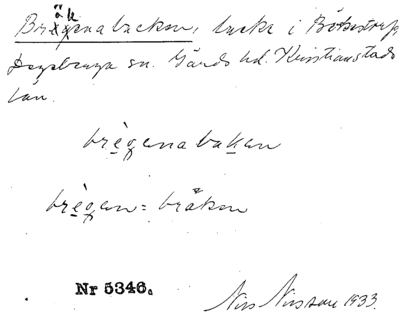 Bräkenabacken, backe i Bökestorp,
Degeberga sn. Gärds hd. Kristianstads
län.
brègenabaken
brègen = bräken
Nr 5346.
Nils Nilsson 1933.